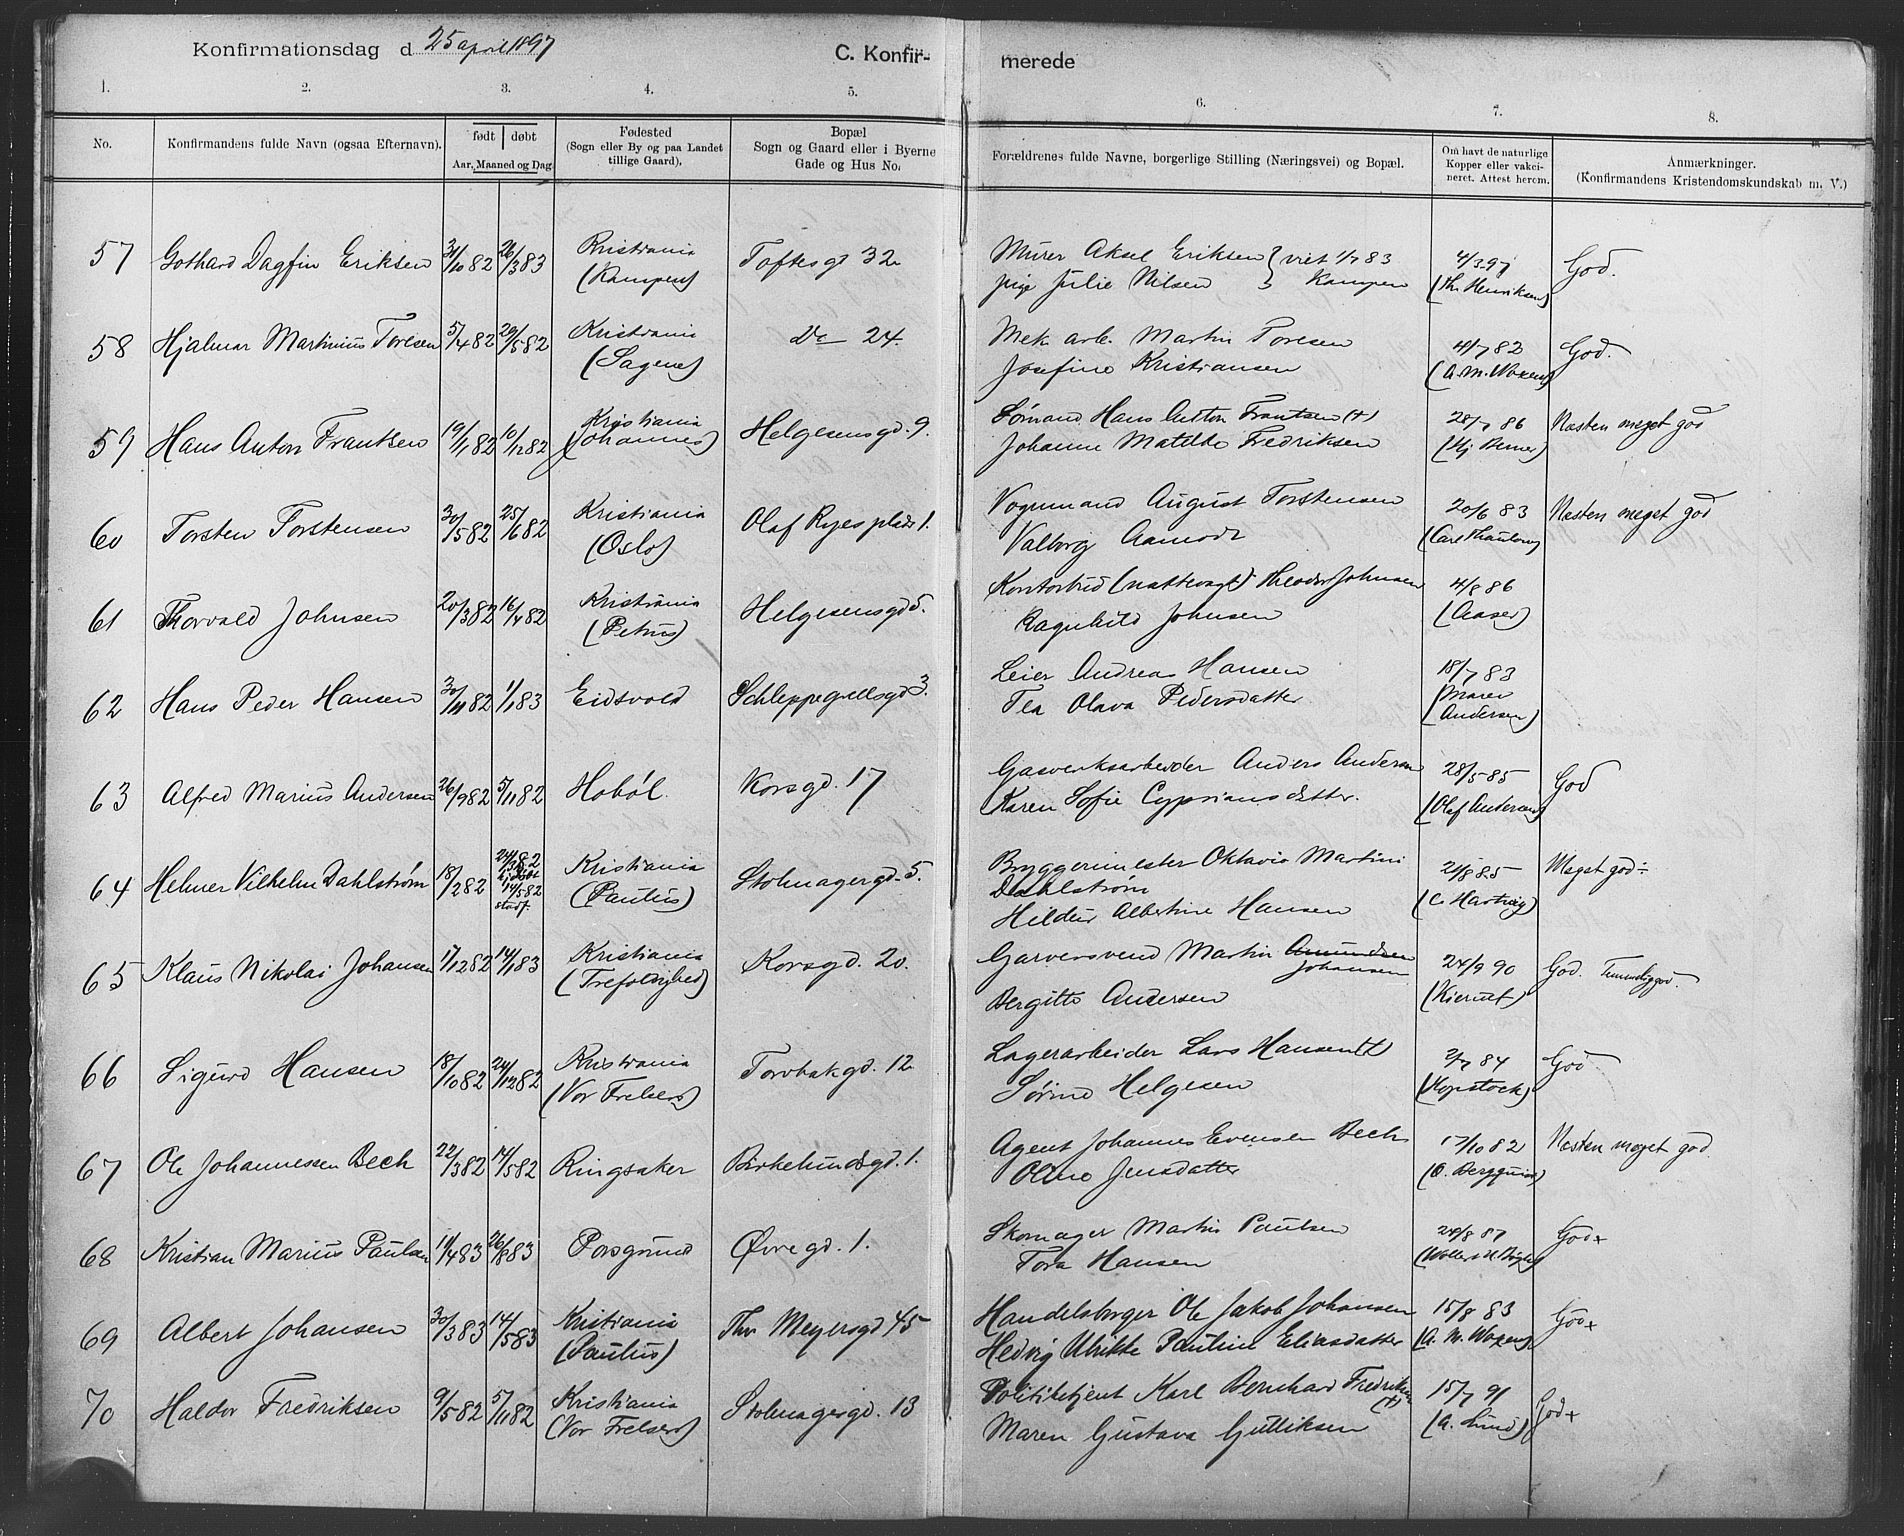 Konfirmationsdag d. 25 april 1897
C. Konfir-
merede
1. 2. 3. 4. 5. 6. 7. 8.
No.
Konfirmandens fulde Navn (ogsaa Efternavn).
født døbt
Aar, Maaned og Dag.
Fødested
(Sogn eller By og paa Landet
tillige Gaard).
Bopæl
Sogn og Gaard eller i Byerne
Gade og Hus No.
Forældrenes fulde Navne, borgerlige Stilling (Næringsvei) og Bopæl.
Om havt de naturlige
Kopper eller vakci-
neret. Attest herom.
Anmærkninger.
(Konfirmandens Kristendomskundskab m. V.)
57 Gothard Dagfin Eriksen 31/10 82 26/3 83 Kristiania
(Kampen) Toftesgd 32
Murer Aksel Eriksen } viet 1/7 83
pige Julie Nilsen } Kampen
4/3 97
(Th. Henriksen) God.
58 Hjalmar Martinius Toresen 5/4 82 29/5 82 Kristiania
(Sagene) Do 24.
Mek arb. Martin Toresen
Josefine Kristiansen
4/7 82
(A. M. Waxen) God.
59 Hans Anton Frantsen 19/1 82 10/12 82 Kristiania
(Johannes) Helgesensgd. 9.
Sømand Hans Anton Frantsen (+)
Johanne Matilde Fredriksen
28/7 86
(Hj. Berner) Næsten meget god
60 Torsten Torstensen 30/5 82 25/6 82 Kristiania
(Oslo) Olaf Ryes plads 1.
Vognmand August Torstensen
Valborg Aamodt
20/6 83
(Carl Thaulow) Næsten meget god
61 Thorvald Johnsen 20/3 82 16/4 82 Kristiania
(Petrus) Helgesensgd 5.
Kontorbud (nattevagt) Theodor Johnsen
Ragnhild Johnsen
4/8 86
(Aaser)
62 Hans Peder Hansen 30/11 82 1/1 83 Eidsvold Schleppegrellsgd 3.
Leier Andreas Hansen
Tea Olava Pedersdatter
18/7 83
(Maren
Andersen)
63 Alfred Marius Andersen 26/9 82 5/11 82 Hobøl. Korsgd. 17
Gasverksarbeider Anders Andersen
Karen Sofie Cypriansdatter.
28/5 85
(Olaf Andersen) God
64 Helmer Vilhelm Dahlstrøm 18/2 82 24/2 82
hj.døbt
14/5 82
stadf. Kristiania
(Paulus) Stolmagergd. 5.
Bryggerimester Oktavio Martini
Dahlstrøm
Hildur Albertine Hansen
21/8 85
(C. Hartvig) Meget god÷
65 Klaus Nikolai Johansen 17/12 82 14/1 83 Kristiania
(Trefoldighed) Korsgd. 20.
Garversvend Martin Amundsen
Johansen
Bergitte Andersen
24/9 90
(Kierulf) God. Temmelig god.
66 Sigurd Hansen 18/10 82 24/12 82 Kristiania
(Vor Frelsers) Torvbakgd. 12
Lagerarbeider Lars Hansen (+)
Sørine Helgesen
2/7 84
(Kopstock) God
67 Ole Johannessen Bech 22/3 82 14/5 82 Ringsaker Birkelundsgd. 1.
Agent Johannes Evensen Bech
Oline Jensdatter
17/10 82
(O. Bergquist) Næsten meget god.
68 Kristian Marius Paulsen 11/4 83 26/8 83 Porsgrund Øvregd. 1.
Skomager Martin Paulsen
Tora Hansen
29/8 87 God+
69 Albert Johansen 30/3 83 14/5 83 Kristiania
(Paulus) Thv Meyersgd 45
Handelsborger Ole Jakob Johansen
Hedvig Ulrikke Pauline Eliasdatter
15/8 83
(A. M. Waxen) God+
70 Haldor Fredriksen 9/5 82 5/11 82 Kristiania
(Vor Frelsers) Stolmagergd. 13
Politibetjent Karl Bernhard Fredriksen
(+)
Maren Gustava Gulliksen
15/7 91
(A. Lund) God+